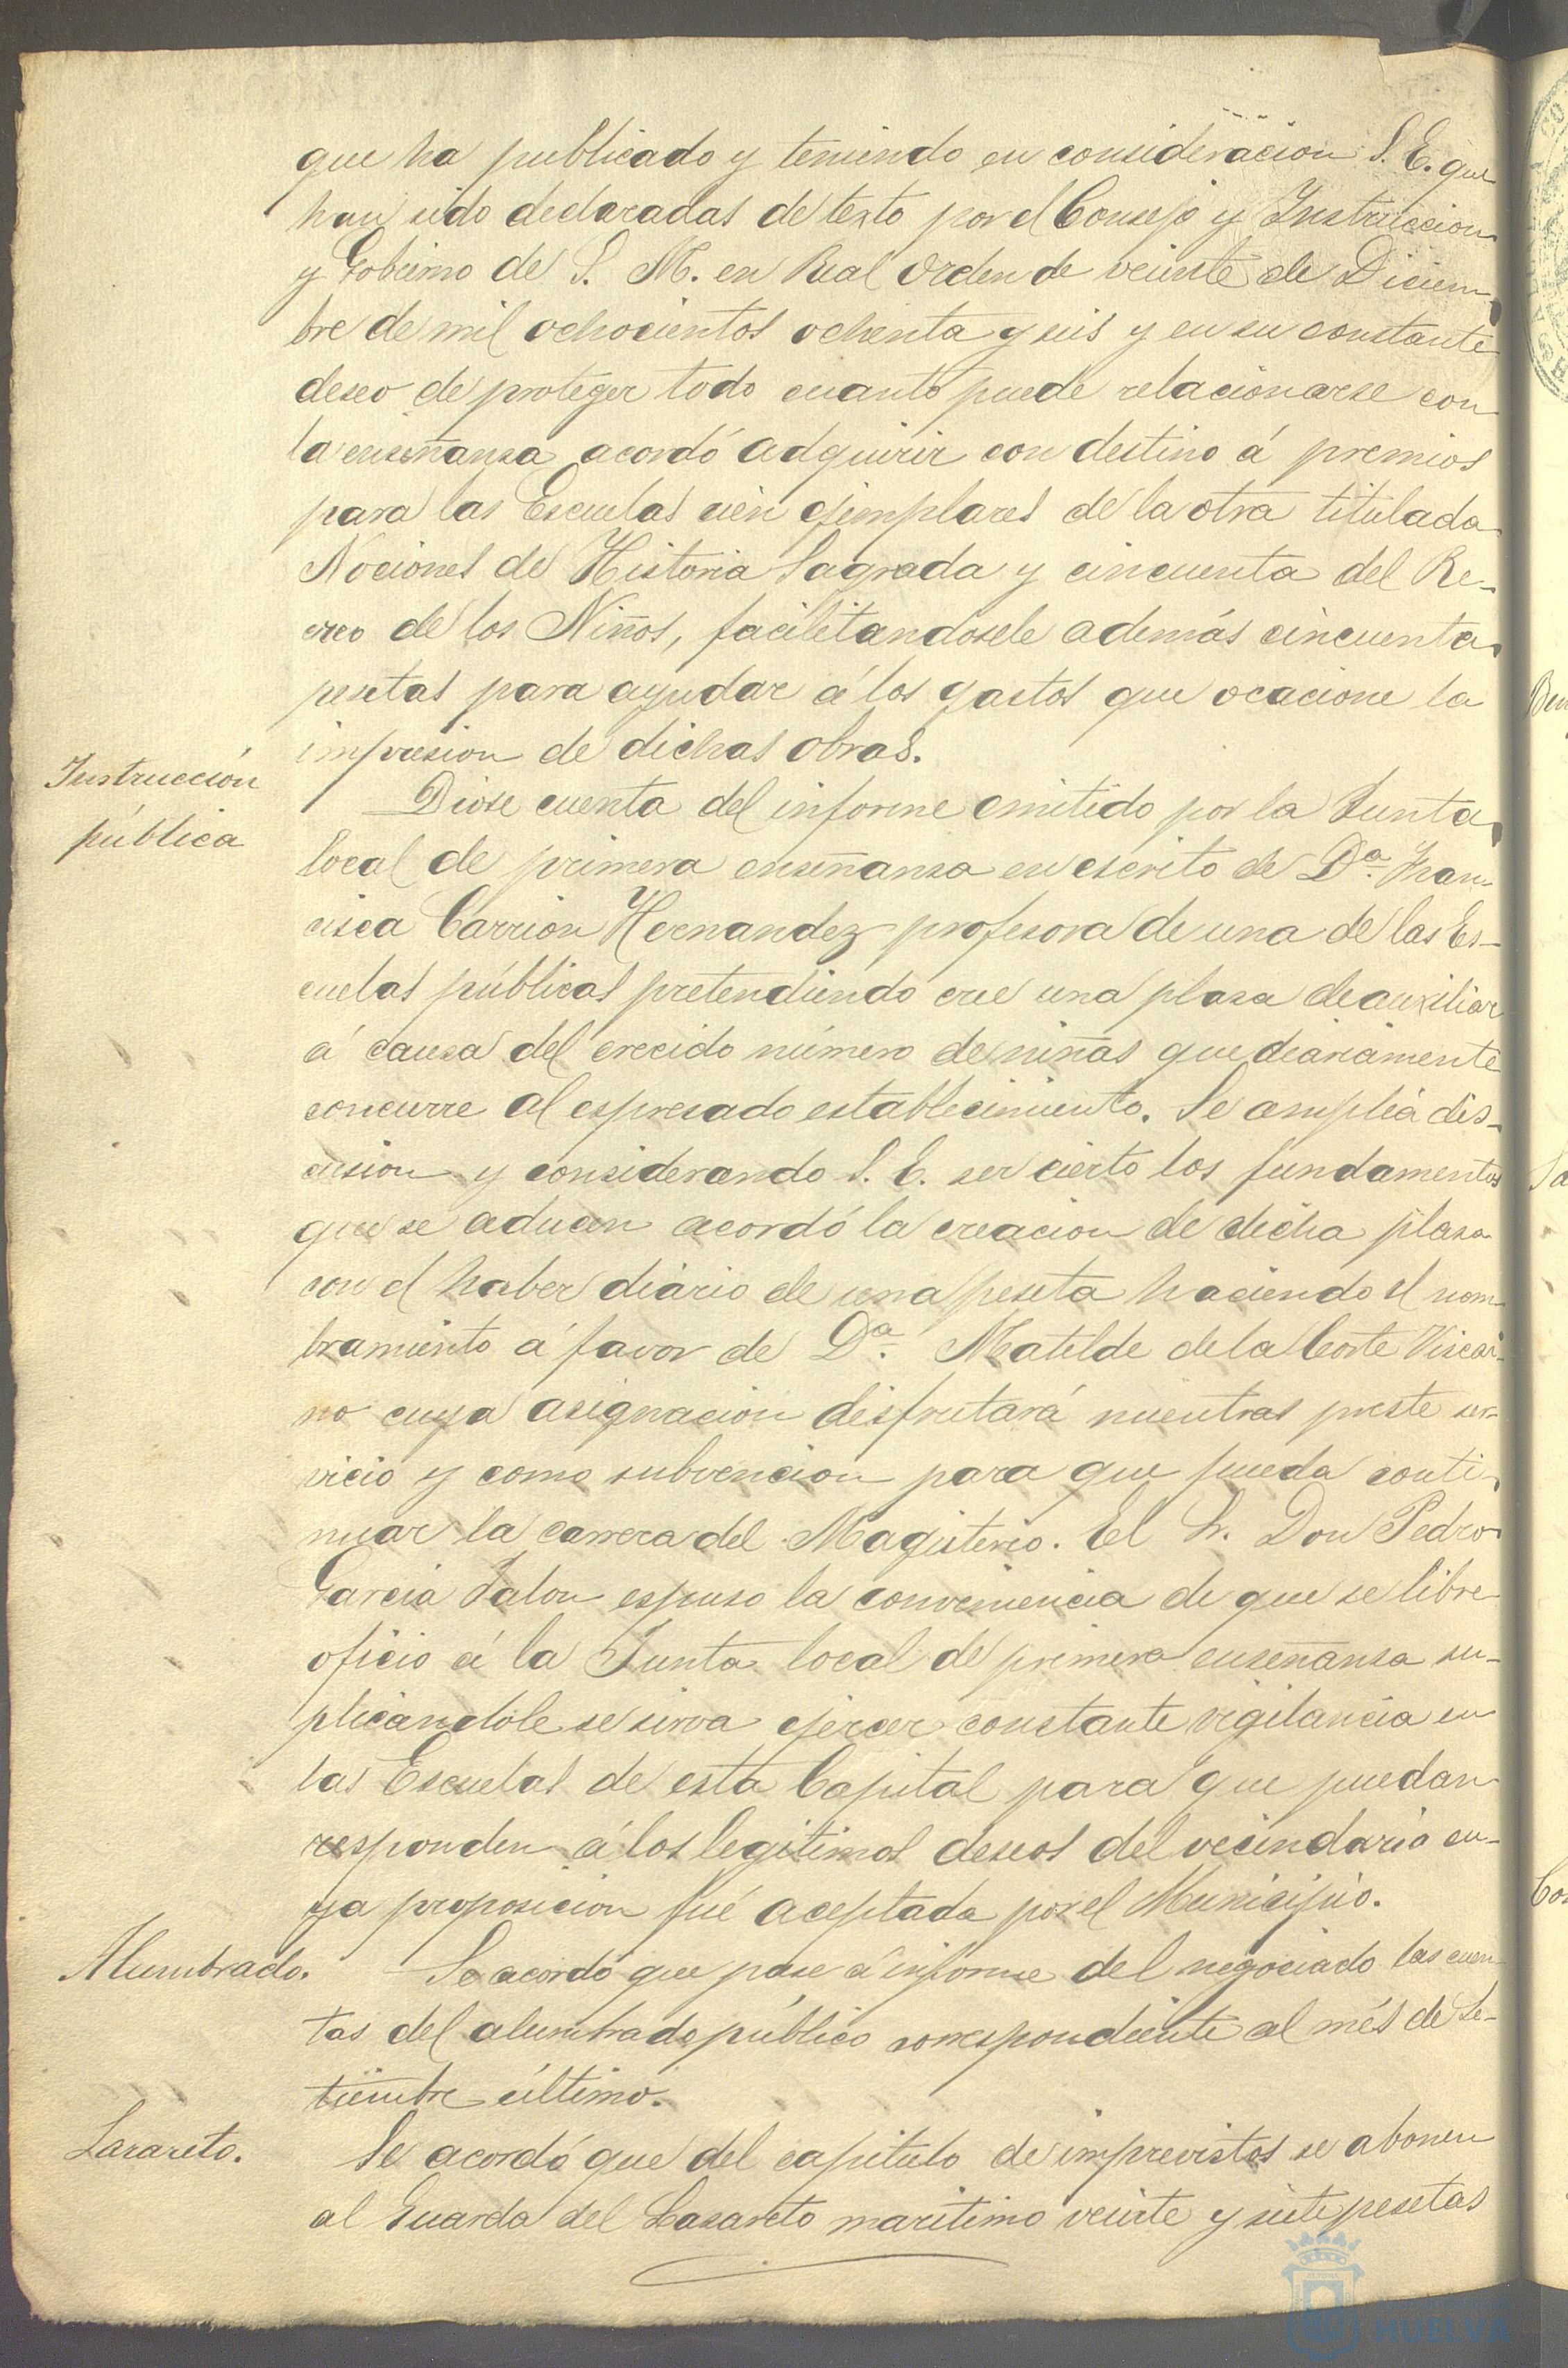 que ha publicado y teniendo en consideracion S. E. que
han sido declaradas de texto por el Consejo y Instruccion
y Gobierno de S. M. en Real orden de veinte de Diciem-
bre de mil ochocientos ochenta y seis y en su constante
deseo de proteger todo cuanto puede relacionarse con
la enseñanza acordó adquirir con destino á premios
para las Escuelas cien ejemplares de la otra titulada
Nociones de Historia Sagrada y cincuenta del Re-
creo de los Niños, facilitandosele además cincuenta
pesetas para ayudar á los gastos que ocacione la
impresion de dichas obras.
Instrucción
pública
Diose cuenta del informe emitido por la Junta
local de primera enseñansa en escrito de Dª. Fran-
cisca Carrión Hernandez profesora de una de las Es-
cuelas públicas pretendiendo cree una plasa de auxiliar
á causa del crecido número de niñas que diariamente
concurre al espresado establecimiento. Se amplia dis-
cusion y considerando S. E. ser cierto los fundamentos
que se aducen acordó la creacion de dicha plasa
con el haber diário de una peseta haciendo el nom-
bramiento á favor de Dª. Matilde de la Corte Viscai-
no cuya asignación disfrutará mientras preste ser-
vicio y como subvencion para que pueda conti-
nuar la carrera del Magisterio. El Sr. Don Pedro
Garcia Jalon espuso la conveniencia de que se libre
oficio á la Junta local de primera enseñansa su-
plicándole se sirva ejercer constante vigilancia en
las Escuelas de esta Capital para que puedan
responden á los legitimos deseos del vecindario cu-
ya proposicion fué aceptada por el Municipio.
Alumbrado.
Se acordó que pase á informe del negociado las cuen-
tas del alumbrado público correspondiente al més de Se-
tiembre último.
Lazareto.
Se acordó que del capitulo de imprevistos se abonen
al Guarda del Lazareto maritimo veinte y siete pesetas
HUELVA